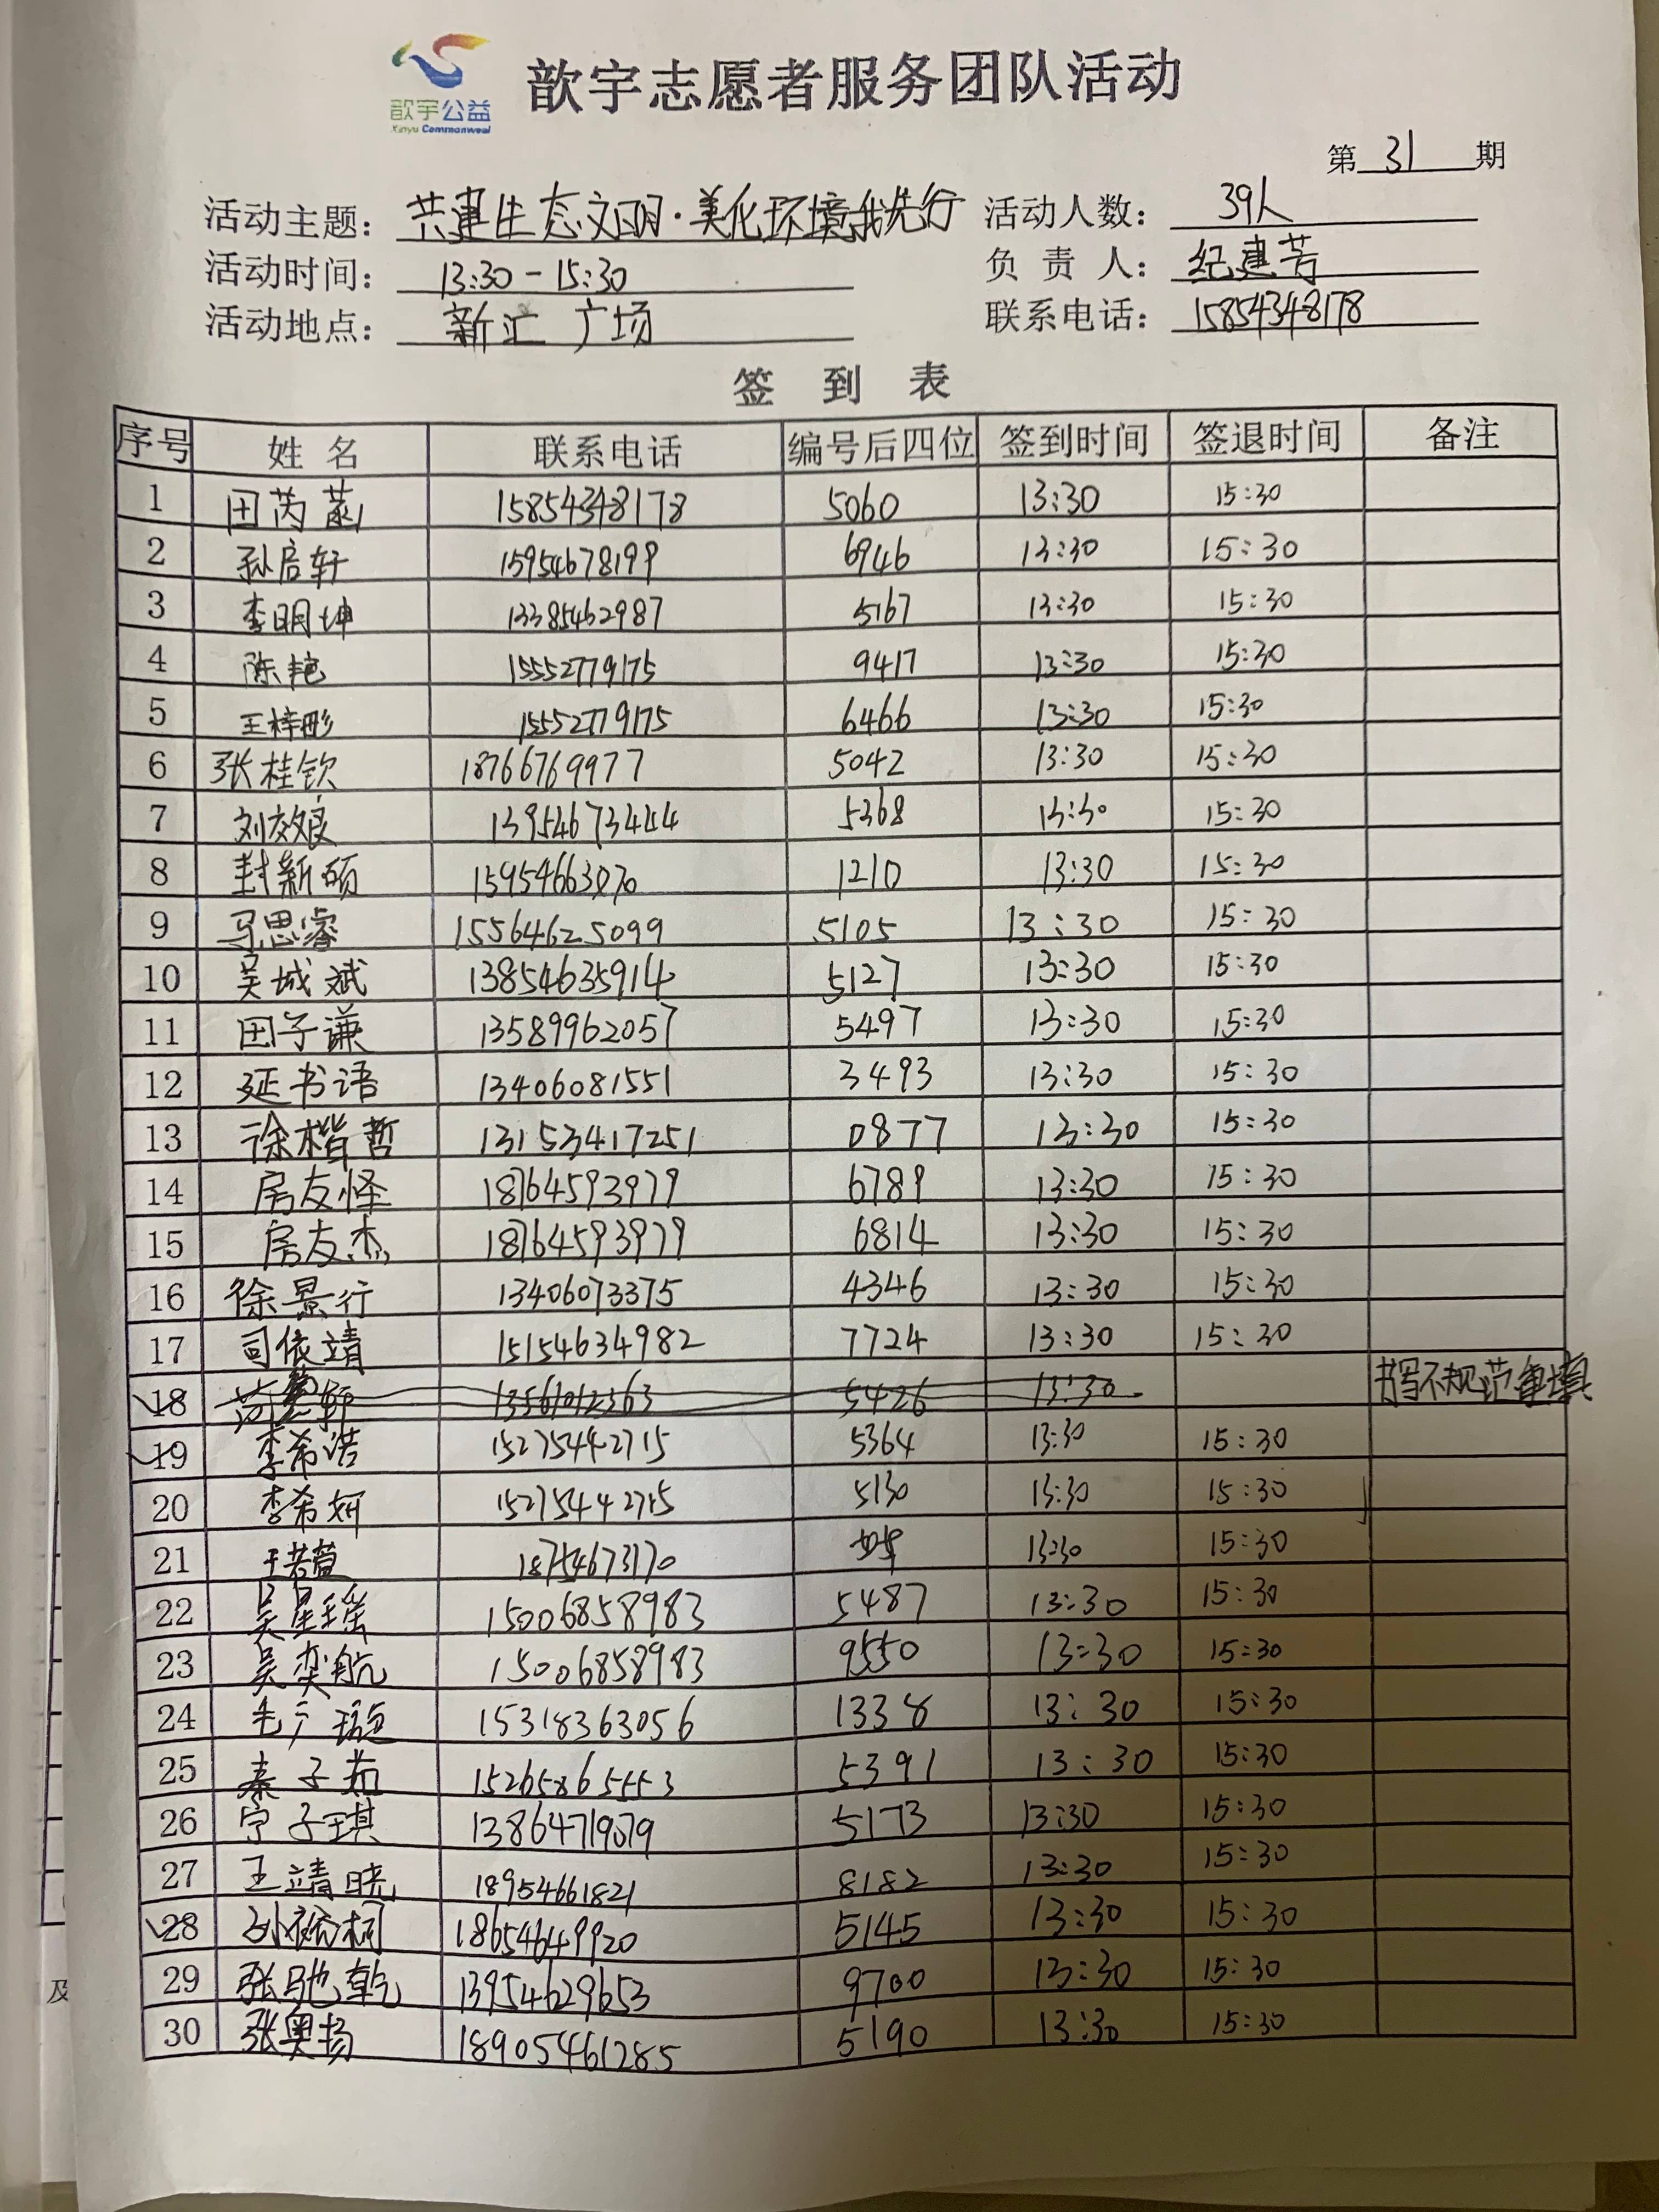 歆宇公益
Xinyu Commonweal
歆宇志愿者服务团队活动
第 31 期
活动主题： 共建生态文明·美化环境我先行 活动人数： 39人
活动时间： 13:30-15:30 负 责 人： 纪建芳
活动地点： 新汇广场 联系电话： 15854348178
签 到 表
序号 姓 名 联系电话 编号后四位 签到时间 签退时间 备注
1 田芮菡 15854348178 5060 13:30 15:30
2 孙启轩 15954678199 6946 13:30 15:30
3 李明坤 13385462987 5167 13:30 15:30
4 陈艳 15552779175 9417 13:30 15:30
5 王梓彤 15552779175 6466 13:30 15:30
6 张桂钦 18766769977 5042 13:30 15:30
7 刘效娘 13954673444 5368 13:30 15:30
8 封新硕 15954663070 1210 13:30 15:30
9 马思睿 15564625099 5105 13:30 15:30
10 吴城斌 13854635914 5127 13:30 15:30
11 田子谦 13589962057 5497 13:30 15:30
12 延书语 13406081551 3493 13:30 15:30
13 徐楷哲 13153417251 0877 13:30 15:30
14 房友怿 18764593979 6789 13:30 15:30
15 房友杰 18764593979 6814 13:30 15:30
16 徐景行 13406073375 4346 13:30 15:30
17 司依靖 15154634982 7724 13:30 15:30
18 13561012363 5426 13:30 书写不规范重填
19 李希浩 15275442715 5364 13:30 15:30
20 李希妍 15275442715 5130 13:30 15:30
21 王若萱 18754673170 13:30 15:30
22 吴星瑶 15006858983 5487 13:30 15:30
23 吴奕航 15006858983 9550 13:30 15:30
24 毛广璇 15318363056 1338 13:30 15:30
25 秦子茹 15265865553 5391 13:30 15:30
26 宁子琪 13864719079 5173 13:30 15:30
27 王靖晓 18954661821 8182 13:30 15:30
28 孙裕桐 18654649920 5145 13:30 15:30
29 张驰乾 13954629653 9700 13:30 15:30
30 张奥扬 18905461285 5190 13:30 15:30
及